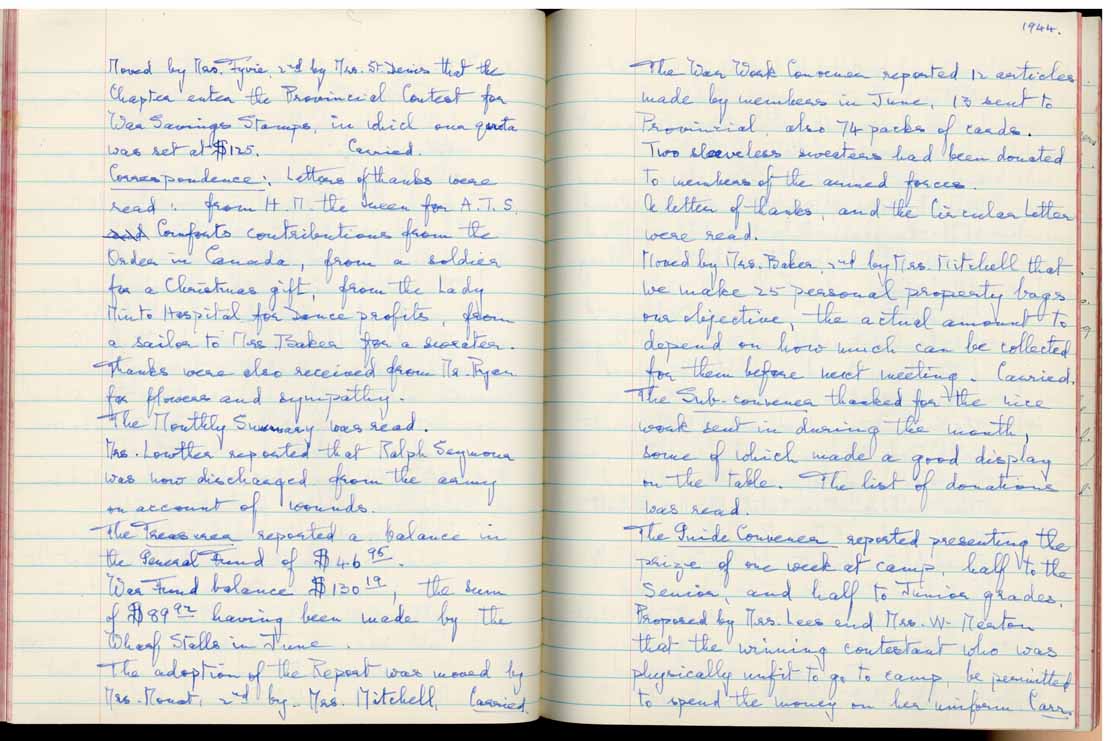 Moved by Mrs. Fyvie, 2nd by Mrs. St. Denis that the
Chapter enter the Provincial Contest for
War Savings Stamps, in which our quota
was set at $125. Carried.
Correspondence: Letters of thanks were
read: from H.M. the Queen for A.T.S.
and Comforts contributions from the
Order in Canada, from a soldier
for a Christmas gift, from the Lady
Minto Hospital for Dance profits, from
a sailor to Mrs Baker for a sweater.
Thanks were also received from Mr. Pryer
for flowers and sympathy.
The Monthly Summary was read.
Mrs. Lowther reported that Ralph Seymour
was now discharged from the army
on account of wounds.
The Treasurer reported a balance in
the General Fund of $46 95.
War Fund balance $130 19, the sum
of $89 92 having been made by the
Wharf Stalls in June.
The adoption of the Report was moved by
Mrs. Mouat, 2nd by Mrs. Mitchell. Carried.
1944.
The War Work Convener reported 12 articles
made by members in June, 13 sent to
Provincial, also 74 packs of cards.
Two sleeveless sweaters had been donated
to members of the armed forces.
A letter of thanks, and the Circular Letter
were read.
Moved by Mrs. Baker, 2nd by Mrs. Mitchell that
we make 25 personal property bags
our objective, the actual amount to
depend on how much can be collected
for them before next meeting. Carried.
The Sub-convener thanked for the nice
work sent in during the month,
some of which made a good display
on the table. The list of donations
was read.
The Guide Convener reported presenting the
prize of one week at camp, half to the
Senior, and half to Junior grades.
Proposed by Mrs. Lees and Mrs. W. Norton
that the winning contestant who was
physically unfit to go to camp, be permitted
to spend the money on her uniform Carr.